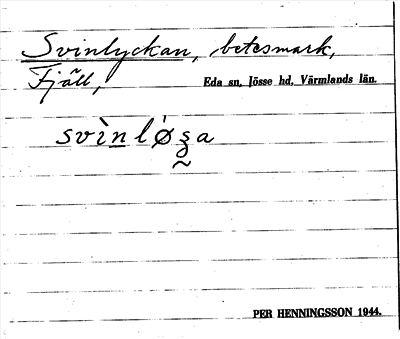 Svinlyckan, betesmark,
Fjäll,
Eda sn, Jösse hd, Värmlands län.
svìn lǿʒa
PER HENNINGSSON 1944.